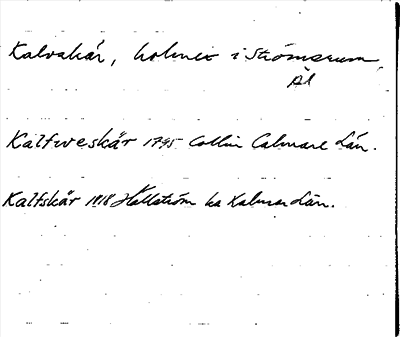 Kalvskär, holmex i Strömsrum,
Ål
Kalfweskär 1795 Collin Calmare Län.
Kalfskär 1818 Hällström ka Kalmar Län.